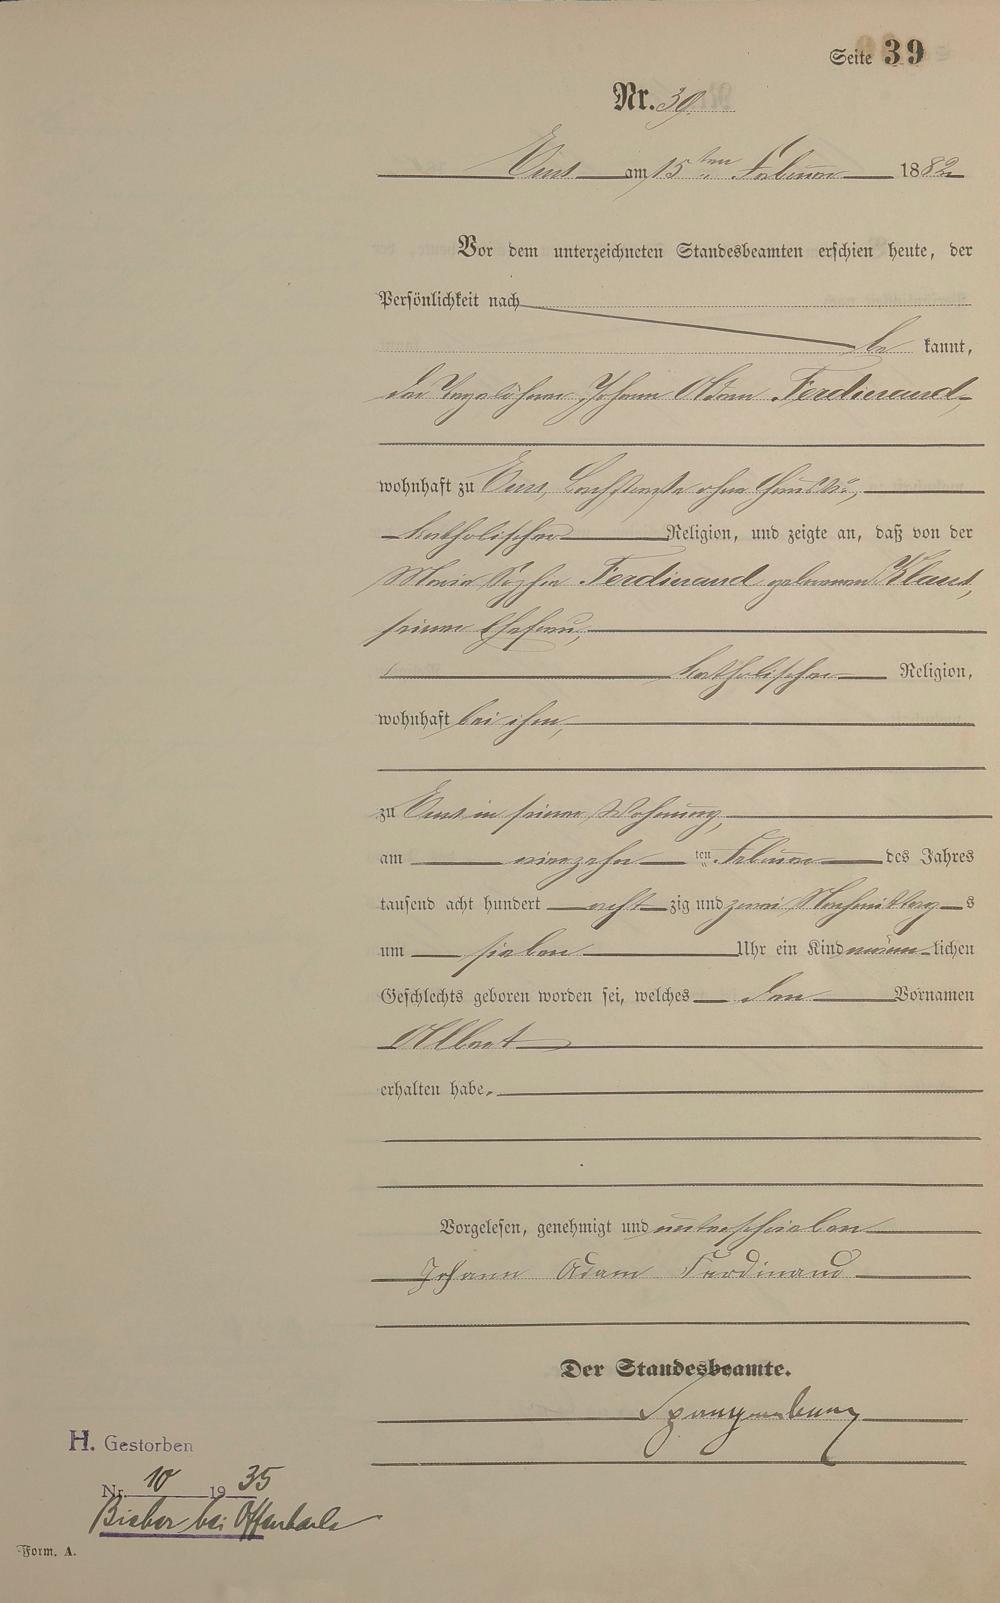 Seite 39
Nr. 39.
Ems am 15ten Februar 1882
Vor dem unterzeichneten Standesbeamten erschien heute, der
Persönlichkeit nach
be kannt,
der Tagelöhner Johann Adam Ferdinand,
wohnhaft zu Ems, ohne
katholischer Religion, und zeigte an, daß von der
Maria Sophia Ferdinand geborenen Klaus,
seiner Ehefrau,
katholischer Religion,
wohnhaft bei ihm,
zu Ems in seiner Wohnung,
am vierzehn ten Februar des Jahres
tausend acht hundert acht zig und zwei Nachmittag s
um sieben Uhr ein Kind männ lichen
Geschlechts geboren worden sei, welches den Vornamen
Albert
erhalten habe.
Vorgelesen, genehmigt und unterschrieben
Johann Adam Ferdinand
Der Standesbeamte.
Spangenberg
H. Gestorben
Nr. 10 1935
Bieber bei Offenbach
Form. A.